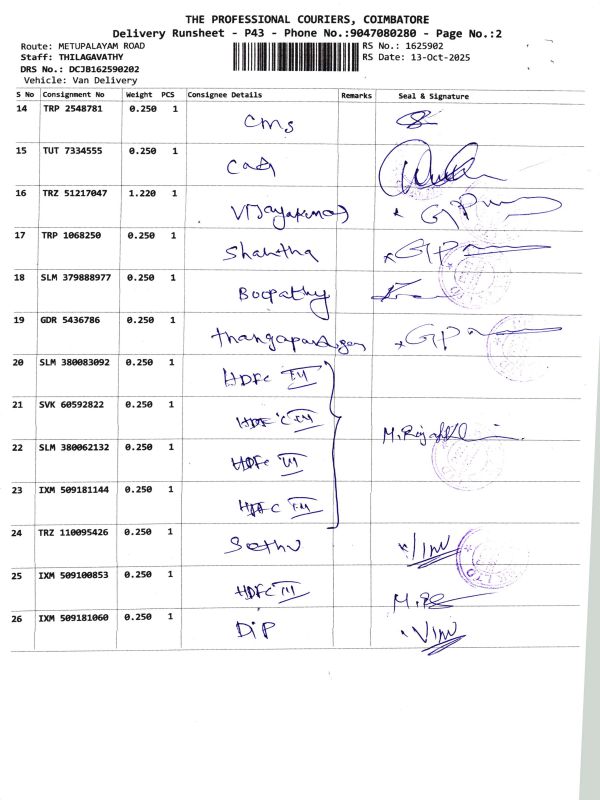 THE PROFESSIONAL COURIERS, COIMBATORE
Delivery Runsheet - P43 - Phone No.:9047080280 - Page No.:2
Route: METUPALAYAM ROAD RS No.: 1625902
Staff: THILAGAVATHY RS Date: 13-Oct-2025
DRS No.: DCJB162590202
Vehicle: Van Delivery
S No Consignment No Weight PCS Consignee Details Remarks Seal & Signature
14 TRP 2548781 0.250 1
CMS
15 TUT 7334555 0.250 1
16 TRZ 51217047 1.220 1
Vijayakumar
17 TRP 1068250 0.250 1
Shantha
18 SLM 379888977 0.250 1
Boopathy
19 GDR 5436786 0.250 1
20 SLM 380083092 0.250 1
HDFC
21 SVK 60592822 0.250 1
HDFC
22 SLM 380062132 0.250 1
HDFC
23 IXM 509181144 0.250 1
HDFC
24 TRZ 110095426 0.250 1
Sethu
25 IXM 509100853 0.250 1
HDFC
26 IXM 509181060 0.250 1
DIP